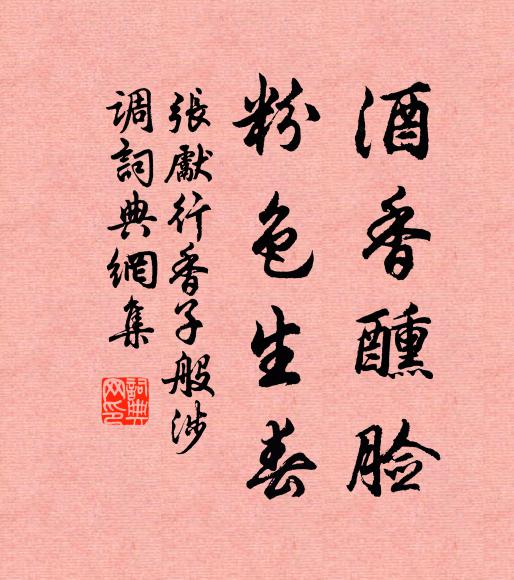 酒香醺脸
粉色生春
張獻行香子般涉
调詞典網集
詞典网印